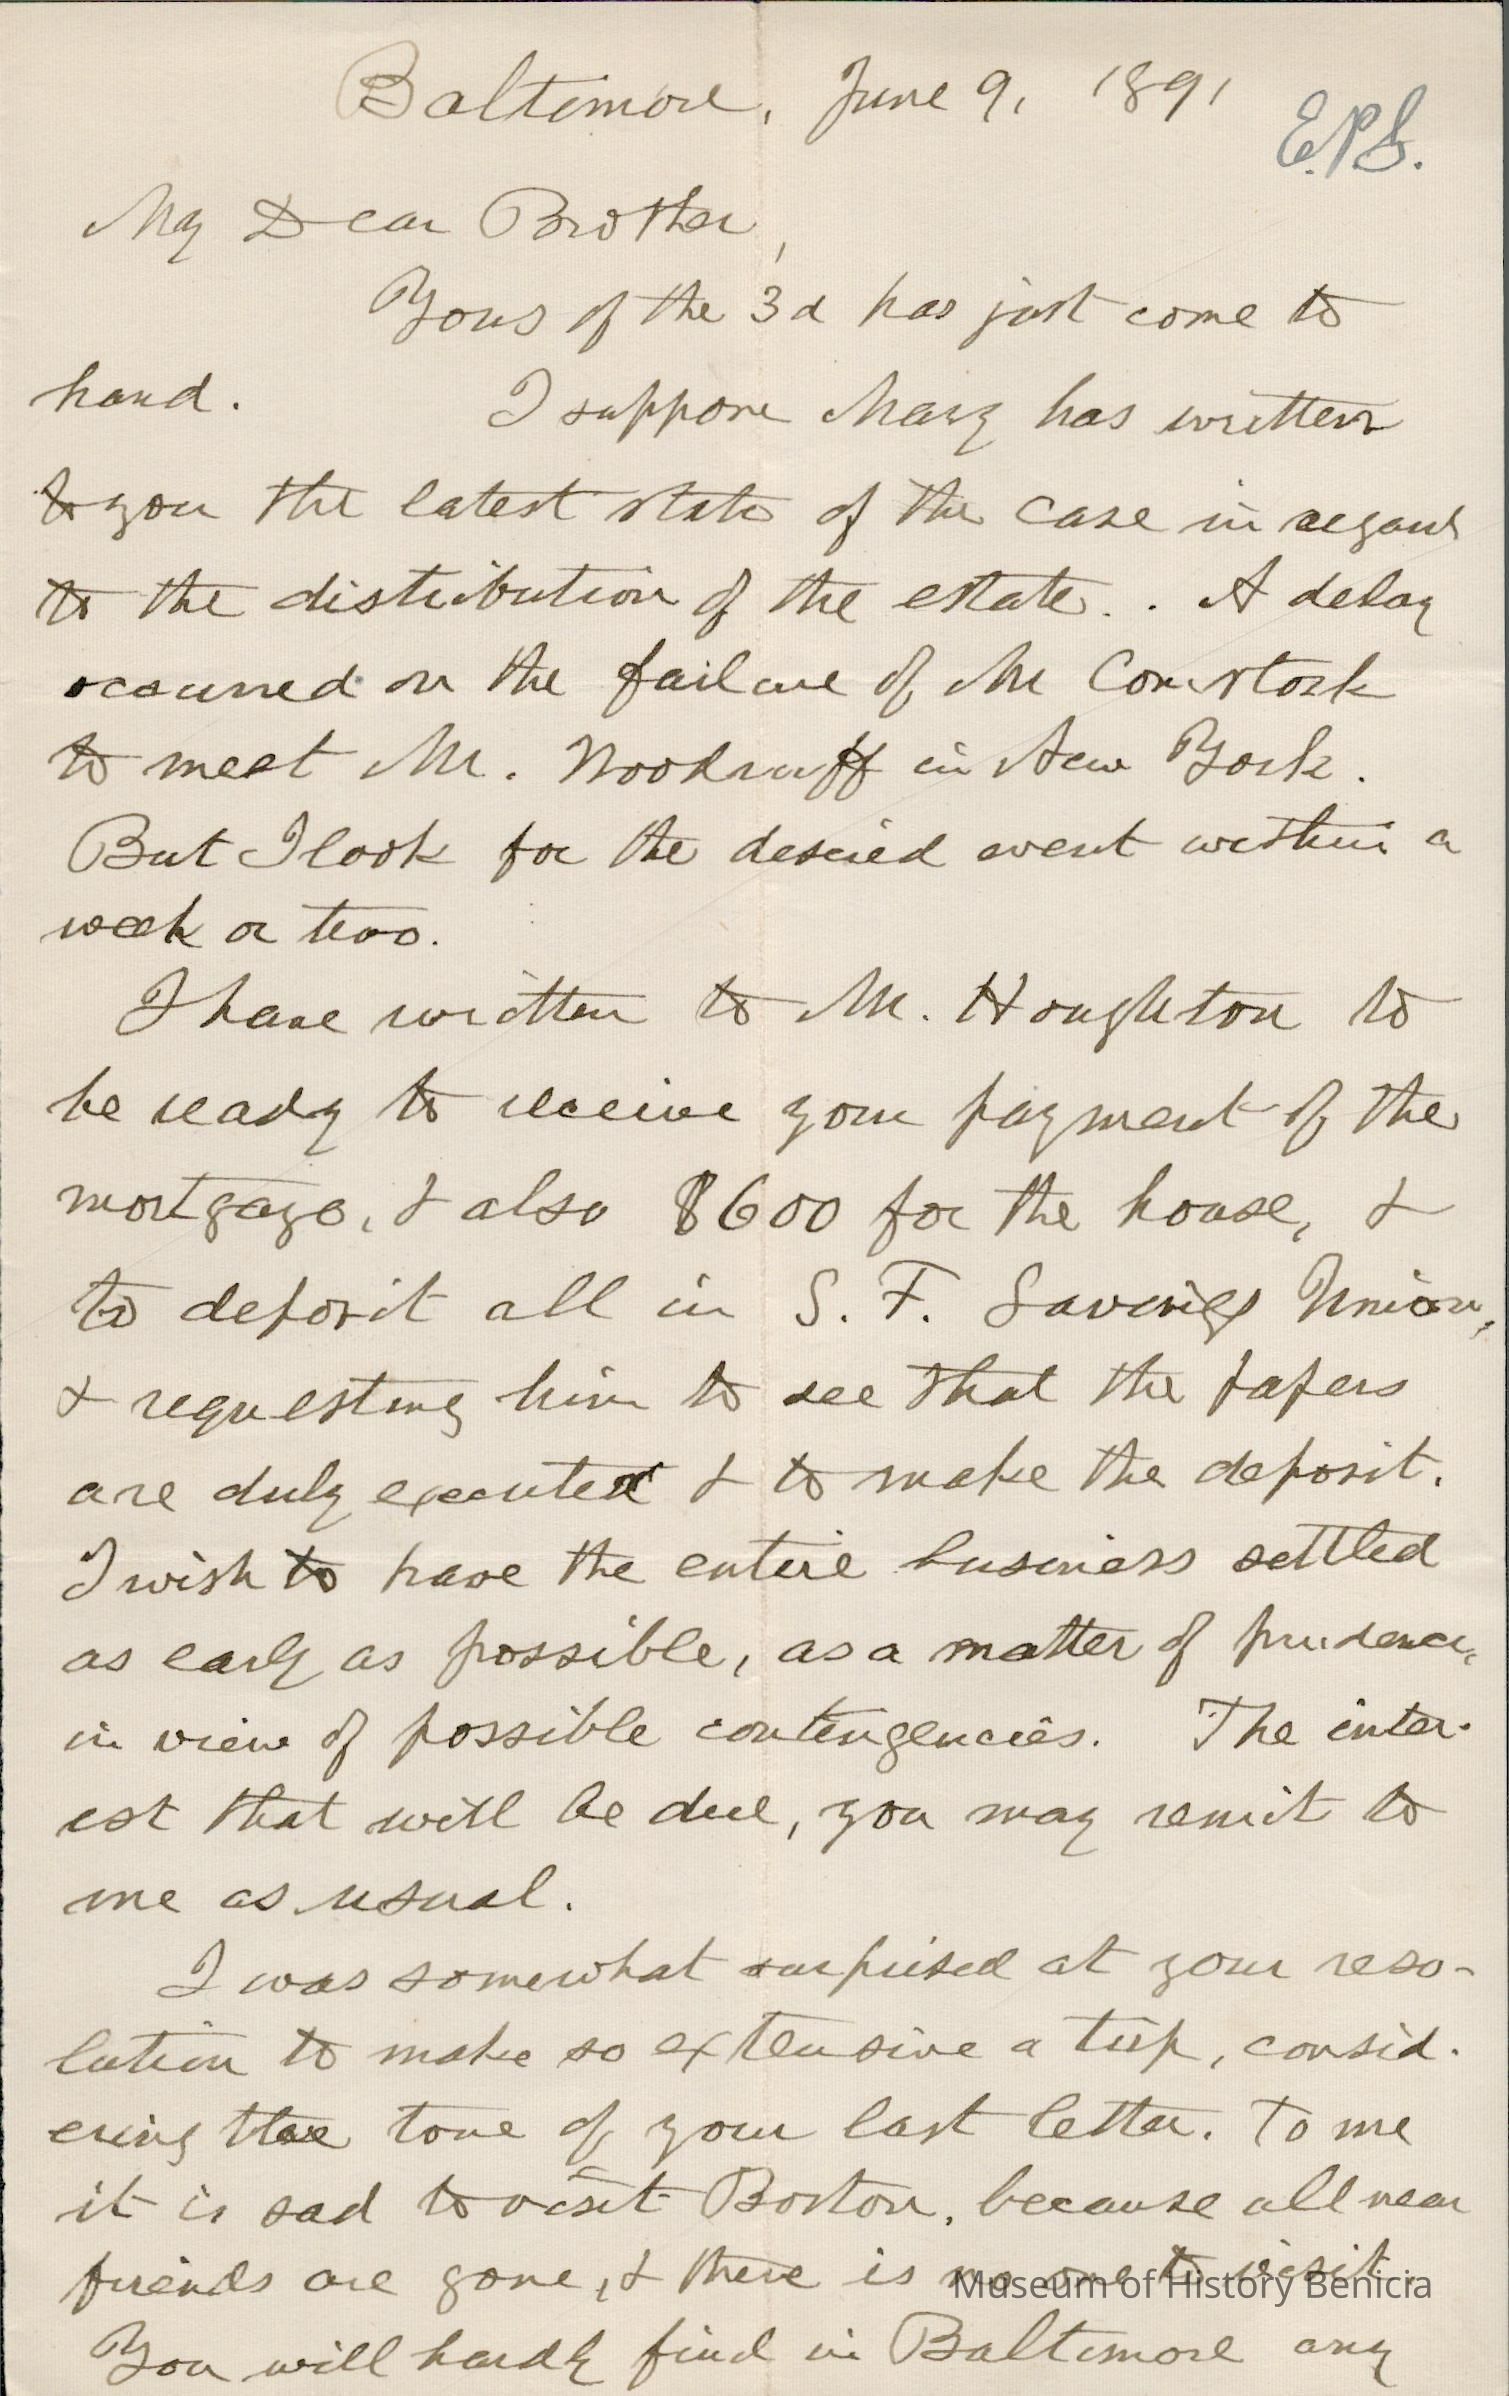 Baltimore, June 9, 1891
E.P.S.
My Dear Brother,
Yours of the 3d has just come to
hand. I suppose Mary has written
to you the latest state of the case in regard
to the distribution of the estate. . A delay
occurred on the failure of Mr Comstock
to meet Mr. Woodruff in New York.
But I look for the desired event within a
week or two.
I have written to Mr. Houghton to
be ready to receive your payment of the
mortgage, & also $600 for the house, &
to deposit all in S. F. Savings Union,
& requesting him to see that the papers
are duly executed & to make the deposit.
I wish to have the entire business settled
as early as possible, as a matter of prudence,
in view of possible contingencies. The inter-
est that will be due, you may remit to
me as usual.
I was somewhat surprised at your reso-
lution to make so extensive a trip, consid-
ering the tone of your last letter. To me
it is sad to visit Boston, because all near
friends are gone, & there is no one to visit.
Museum of History Benicia
You will hardly find in Baltimore any